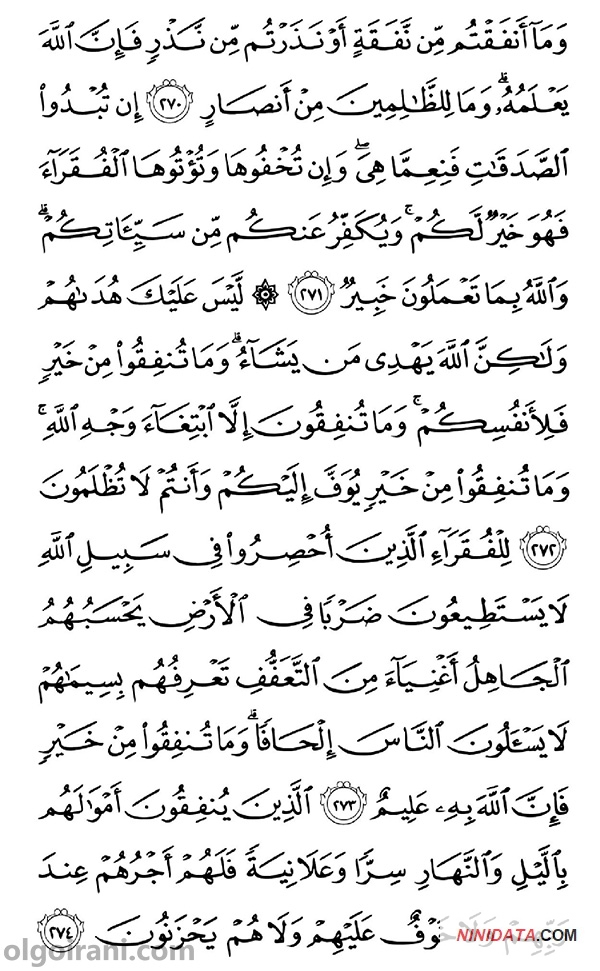 وَمَآ أَنفَقْتُم مِّن نَّفَقَةٍ أَوْ نَذَرْتُم مِّن نَّذْرٍ فَإِنَّ ٱللَّهَ
يَعْلَمُهُۥۗ وَمَا لِلظَّٰلِمِينَ مِنْ أَنصَارٍ ٢٧٠ إِن تُبْدُوا۟
ٱلصَّدَقَٰتِ فَنِعِمَّا هِىَۖ وَإِن تُخْفُوهَا وَتُؤْتُوهَا ٱلْفُقَرَآءَ
فَهُوَ خَيْرٌ لَّكُمْۚ وَيُكَفِّرُ عَنكُم مِّن سَيِّـَٔاتِكُمْۗ
وَٱللَّهُ بِمَا تَعْمَلُونَ خَبِيرٌ ٢٧١ ۞ لَّيْسَ عَلَيْكَ هُدَىٰهُمْ
وَلَٰكِنَّ ٱللَّهَ يَهْدِى مَن يَشَآءُۗ وَمَا تُنفِقُوا۟ مِنْ خَيْرٍ
فَلِأَنفُسِكُمْۚ وَمَا تُنفِقُونَ إِلَّا ٱبْتِغَآءَ وَجْهِ ٱللَّهِۚ
وَمَا تُنفِقُوا۟ مِنْ خَيْرٍ يُوَفَّ إِلَيْكُمْ وَأَنتُمْ لَا تُظْلَمُونَ
٢٧٢ لِلْفُقَرَآءِ ٱلَّذِينَ أُحْصِرُوا۟ فِى سَبِيلِ ٱللَّهِ
لَا يَسْتَطِيعُونَ ضَرْبًا فِى ٱلْأَرْضِ يَحْسَبُهُمُ
ٱلْجَاهِلُ أَغْنِيَآءَ مِنَ ٱلتَّعَفُّفِ تَعْرِفُهُم بِسِيمَٰهُمْ
لَا يَسْـَٔلُونَ ٱلنَّاسَ إِلْحَافًاۗ وَمَا تُنفِقُوا۟ مِنْ خَيْرٍ
فَإِنَّ ٱللَّهَ بِهِۦ عَلِيمٌ ٢٧٣ ٱلَّذِينَ يُنفِقُونَ أَمْوَٰلَهُم
بِٱلَّيْلِ وَٱلنَّهَارِ سِرًّا وَعَلَانِيَةً فَلَهُمْ أَجْرُهُمْ عِندَ
رَبِّهِمْ وَلَا خَوْفٌ عَلَيْهِمْ وَلَا هُمْ يَحْزَنُونَ ٢٧٤
NINIDATA.COM
olgoirani.com